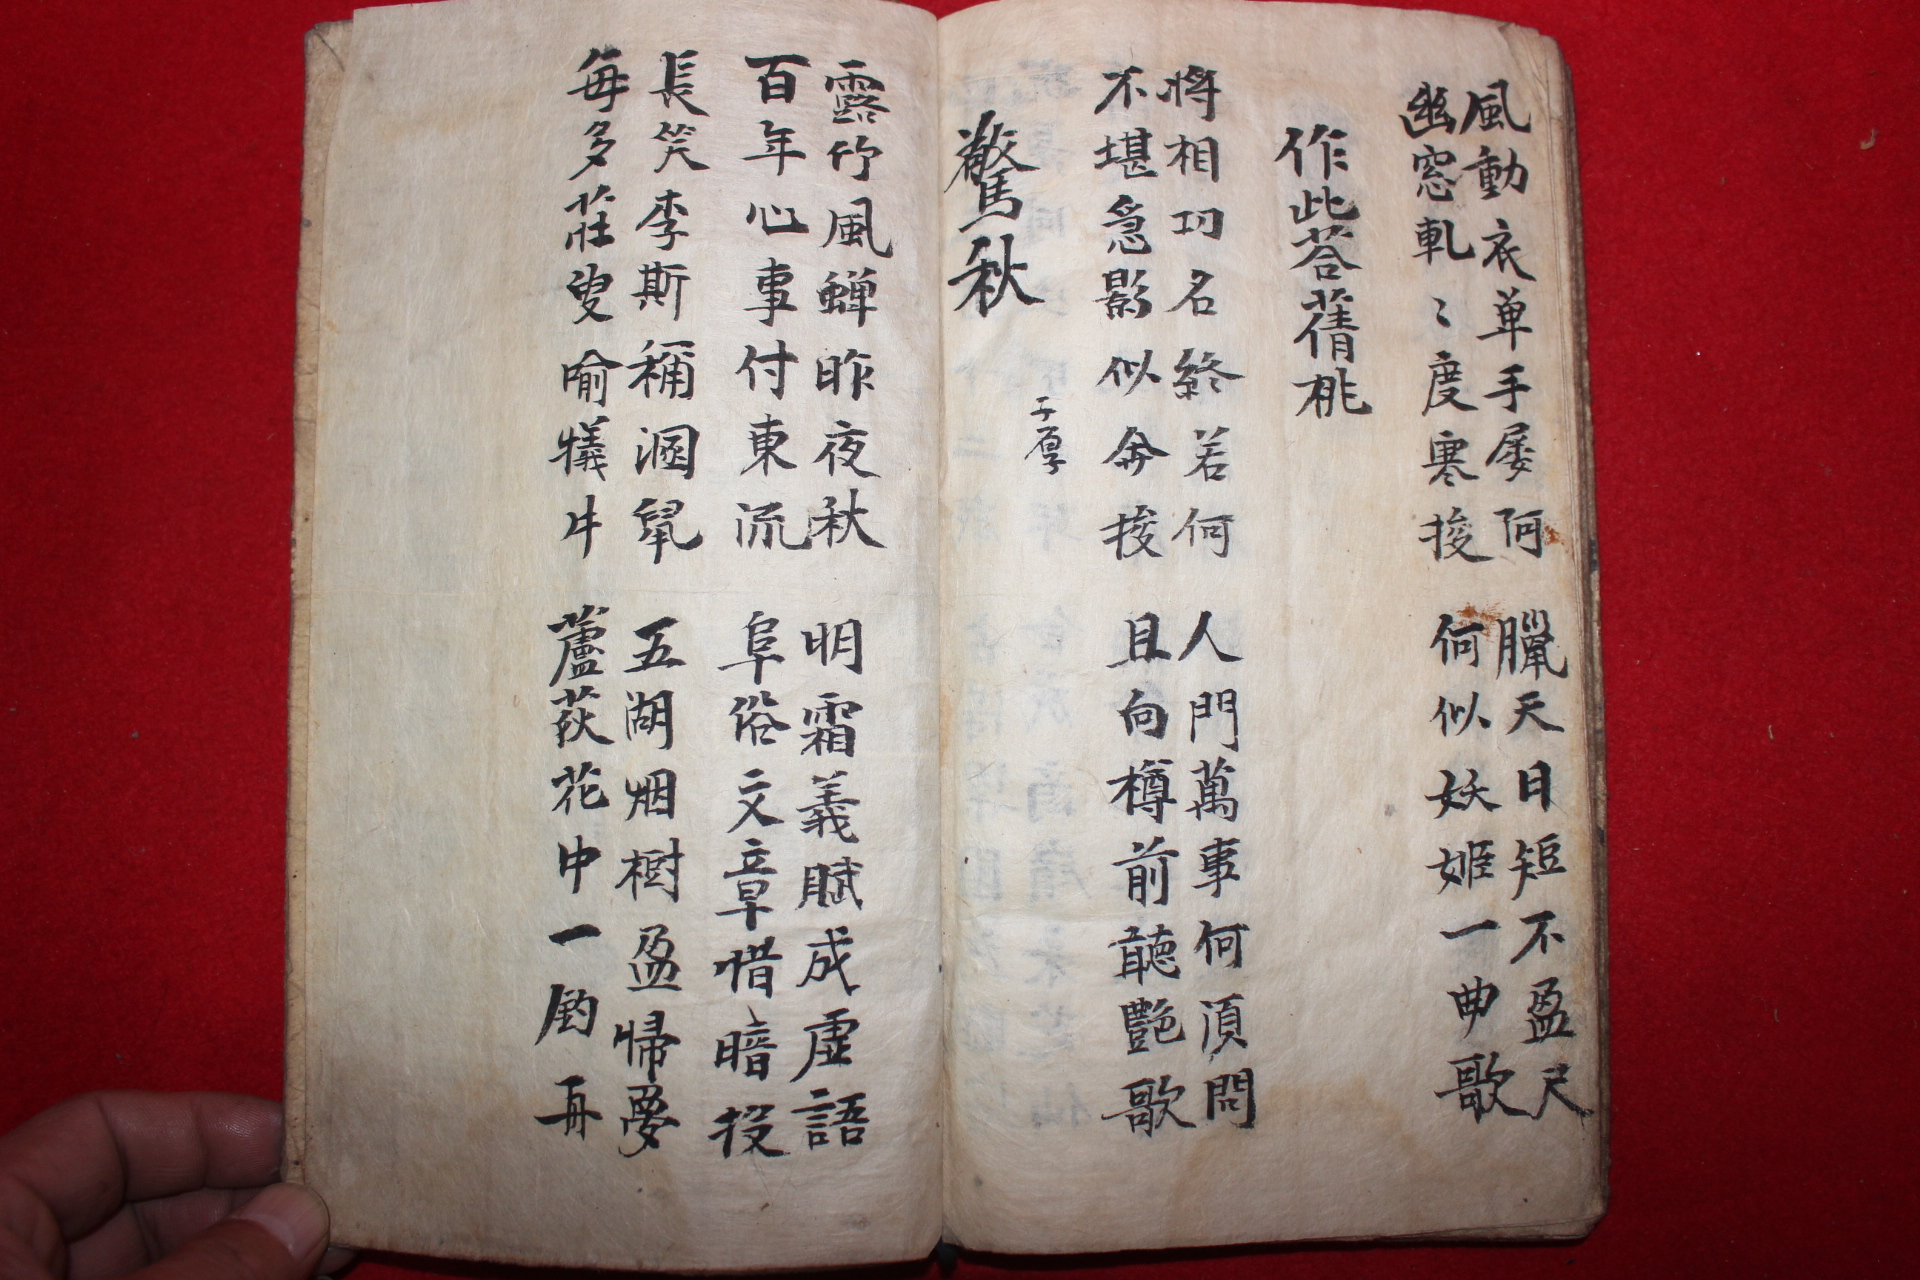 風動衣單手屡呵　臘天日短不盈尺
幽窓軋〻度寒梭　何似妖姬一曲歌
作此答蒨桃
將相功名終若何　人門萬事何湏問
不堪急影似奔梭　且向樽前聽艷歌
驚秋
子厚
露竹風蟬昨夜秋　明霜義賦成虛語
百年心事付東流　阜俗文章惜暗投
長笑李斯稱溷鼠　五湖烟樹盈歸夢
每多莊叟喻犧牛　蘆荻花中一釣舟